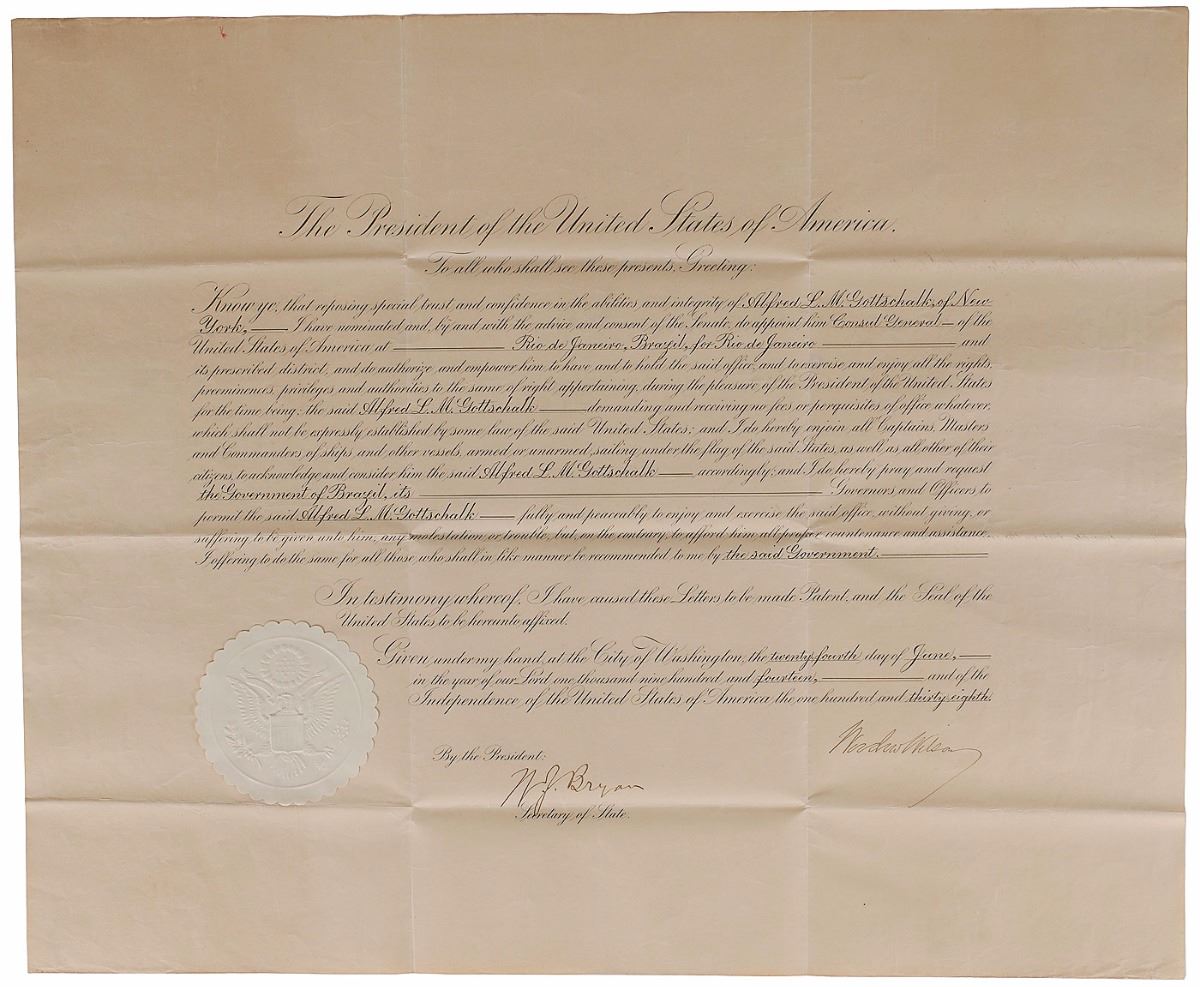 The President of the United States of America.
To all who shall see these presents, Greeting:
Know ye, that reposing special trust and confidence in the abilities and integrity of Alfred L. M. Gottschalk, of New
York, — I have nominated and, by and with the advice and consent of the Senate, do appoint him Consul General — of the
United States of America at — Rio de Janeiro, Brazil, for Rio de Janeiro — and
its prescribed district, and do authorize and empower him to have and to hold the said office, and to exercise and enjoy all the rights,
preeminences, privileges and authorities to the same of right appertaining, during the pleasure of the President of the United States
for the time being; the said Alfred L. M. Gottschalk — demanding and receiving no fees or perquisites of office whatever,
which shall not be expressly established by some law of the said United States; and I do hereby enjoin all Captains, Masters
and Commanders of ships and other vessels, armed or unarmed, sailing under the flag of the said States, as well as all other of their
citizens, to acknowledge and consider him the said Alfred L. M. Gottschalk — accordingly; and I do hereby pray and request
the Government of Brazil, its — Governors and Officers, to
permit the said Alfred L. M. Gottschalk — fully and peaceably to enjoy and exercise the said office, without giving, or
suffering to be given unto him, any molestation or trouble, but, on the contrary, to afford him all proper countenance and assistance.
I offering to do the same for all those who shall in like manner be recommended to me by the said Government. —
In testimony whereof, I have caused these Letters to be made Patent, and the Seal of the
United States to be hereunto affixed.
Given under my hand, at the City of Washington, the twenty-fourth day of June, —
in the year of our Lord one thousand nine hundred and fourteen, — and of the
Independence of the United States of America the one hundred and thirty-eighth.
Woodrow Wilson
By the President:
W. J. Bryan
Secretary of State.